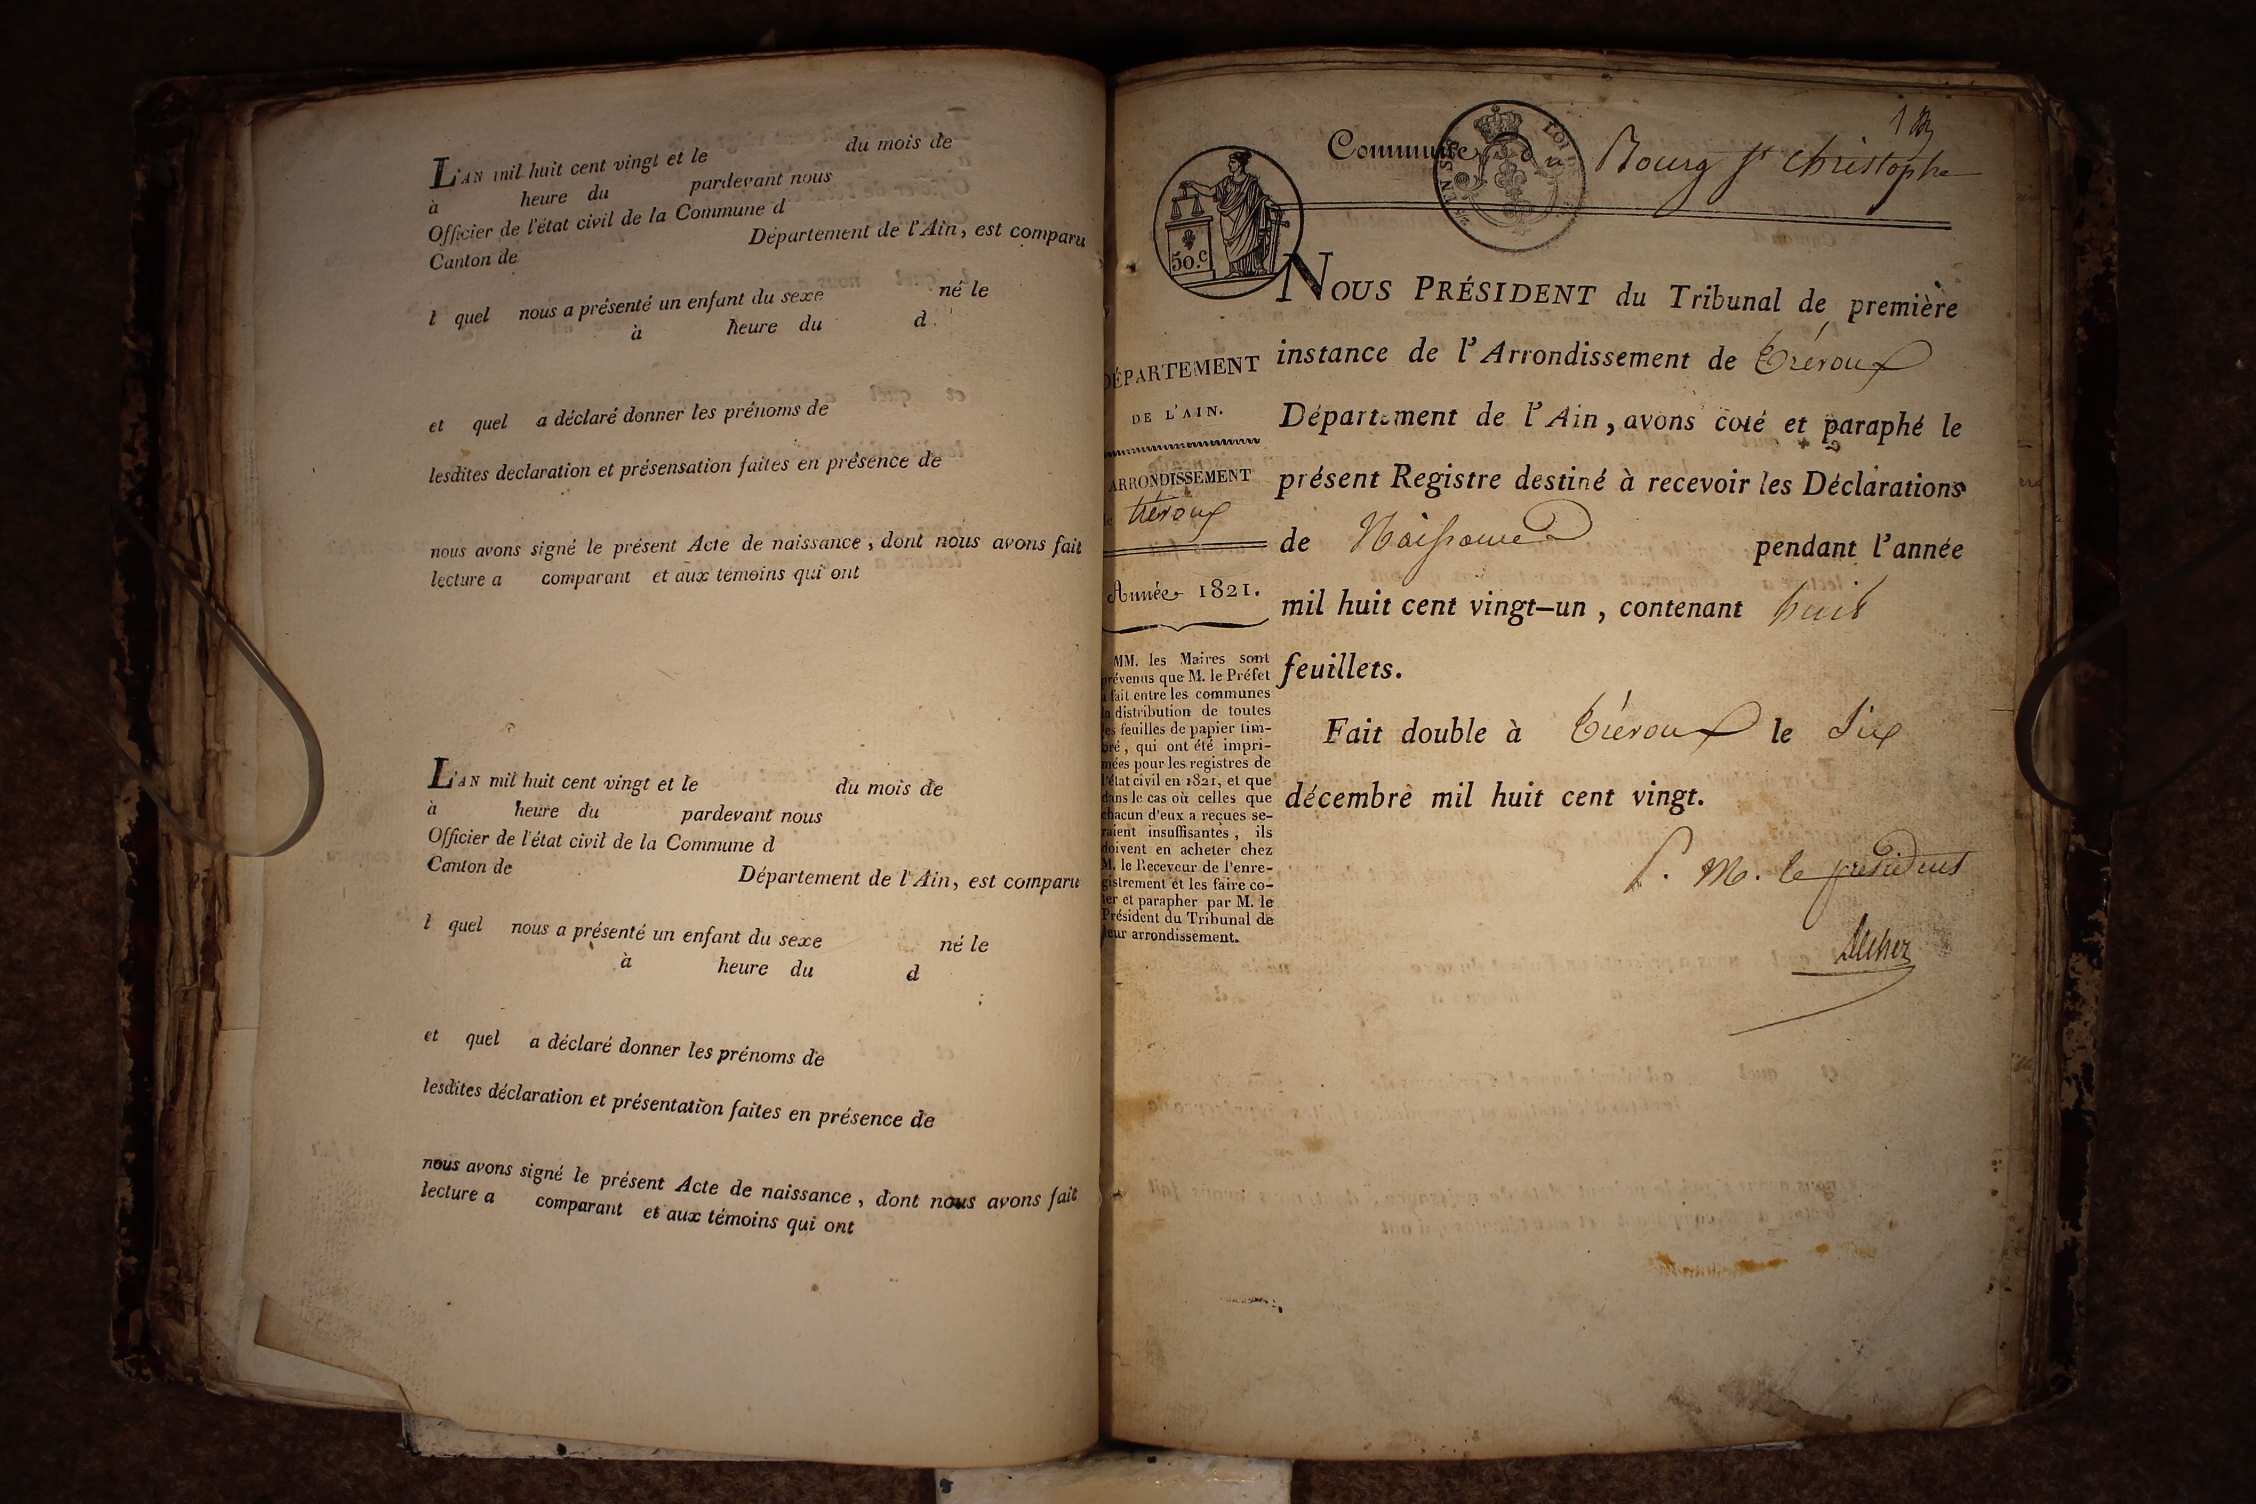 L'AN mil huit cent vingt et le du mois de
à heure du pardevant nous
Officier de l'état civil de la Commune d
Canton de Département de l'Ain, est comparu
l quel nous a présenté un enfant du sexe né le
à heure du d
et quel a déclaré donner les prénoms de
lesdites declaration et présensation faites en présence de
nous avons signé le présent Acte de naissance, dont nous avons fait
lecture a comparant et aux témoins qui ont
L'AN mil huit cent vingt et le du mois de
à heure du pardevant nous
Officier de l'état civil de la Commune d
Canton de Département de l'Ain, est comparu
l quel nous a présenté un enfant du sexe né le
à heure du d
et quel a déclaré donner les prénoms de
lesdites déclaration et présentation faites en présence de
nous avons signé le présent Acte de naissance, dont nous avons fait
lecture a comparant et aux témoins qui ont
1
Commune du Bourg St Christophe
50.c
DÉPARTEMENT
DE L'AIN.
ARRONDISSEMENT
de trévoux
Année 1821.
MM. les Maires sont
prévenus que M. le Préfet
a fait entre les communes
la distribution de toutes
les feuilles de papier tim-
bré, qui ont été impri-
mées pour les registres de
l'état civil en 1821, et que
dans le cas où celles que
chacun d'eux a reçues se-
raient insuffisantes, ils
doivent en acheter chez
M. le Receveur de l'enre-
gistrement et les faire co-
ter et parapher par M. le
Président du Tribunal de
leur arrondissement.
NOUS PRÉSIDENT du Tribunal de première
instance de l'Arrondissement de Trévoux
Département de l'Ain, avons coté et paraphé le
présent Registre destiné à recevoir les Déclarations
de Naissance pendant l'année
mil huit cent vingt-un, contenant huit
feuillets.
Fait double à Trévoux le Six
décembre mil huit cent vingt.
P. M. le président